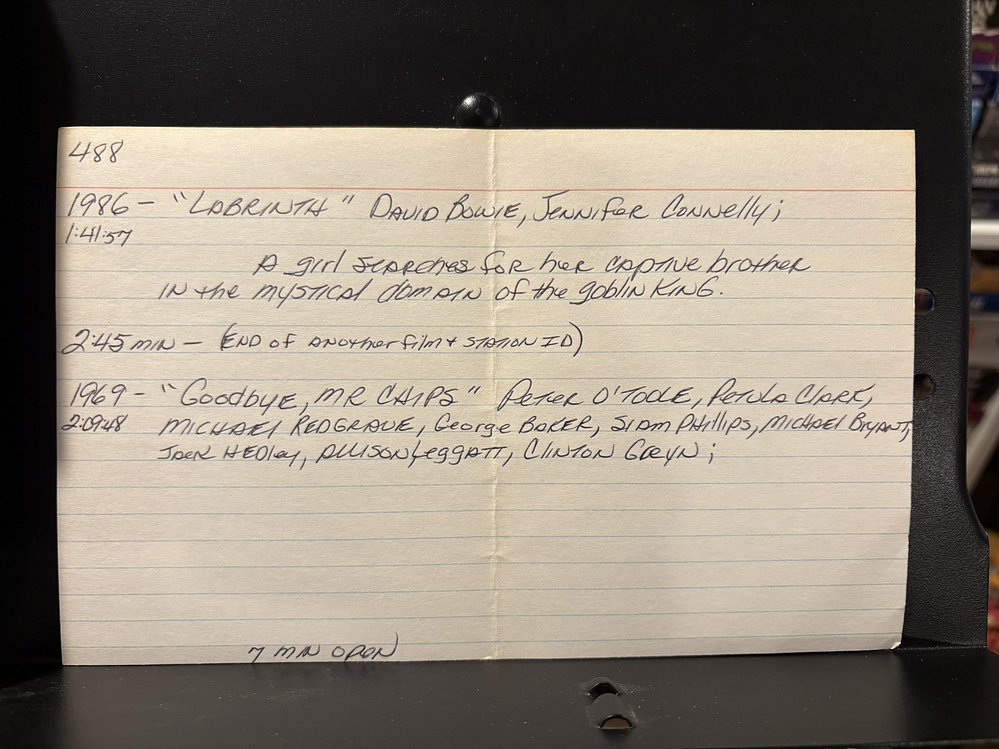 488
1986 - "LABRINTH" DAVID BOWIE, JENNIFER CONNELLY;
1:41:57
A girl SEARCHES for her CAPTIVE brother
IN the MYSTICAL domAIN of the goblin KING.
2:45 MIN - (END of ANother film + STATION ID)
1969 - "Goodbye, MR CHIPS" PETER O'TOOLE, PETULA CLARK,
2:09:48 MICHAEL REDGRAVE, George BAKER, SIAM PHillips, MICHAEL BRYANT,
JACK HEDley, ALLISON LeggATT, CLINTON GREYN;
7 MIN OPEN